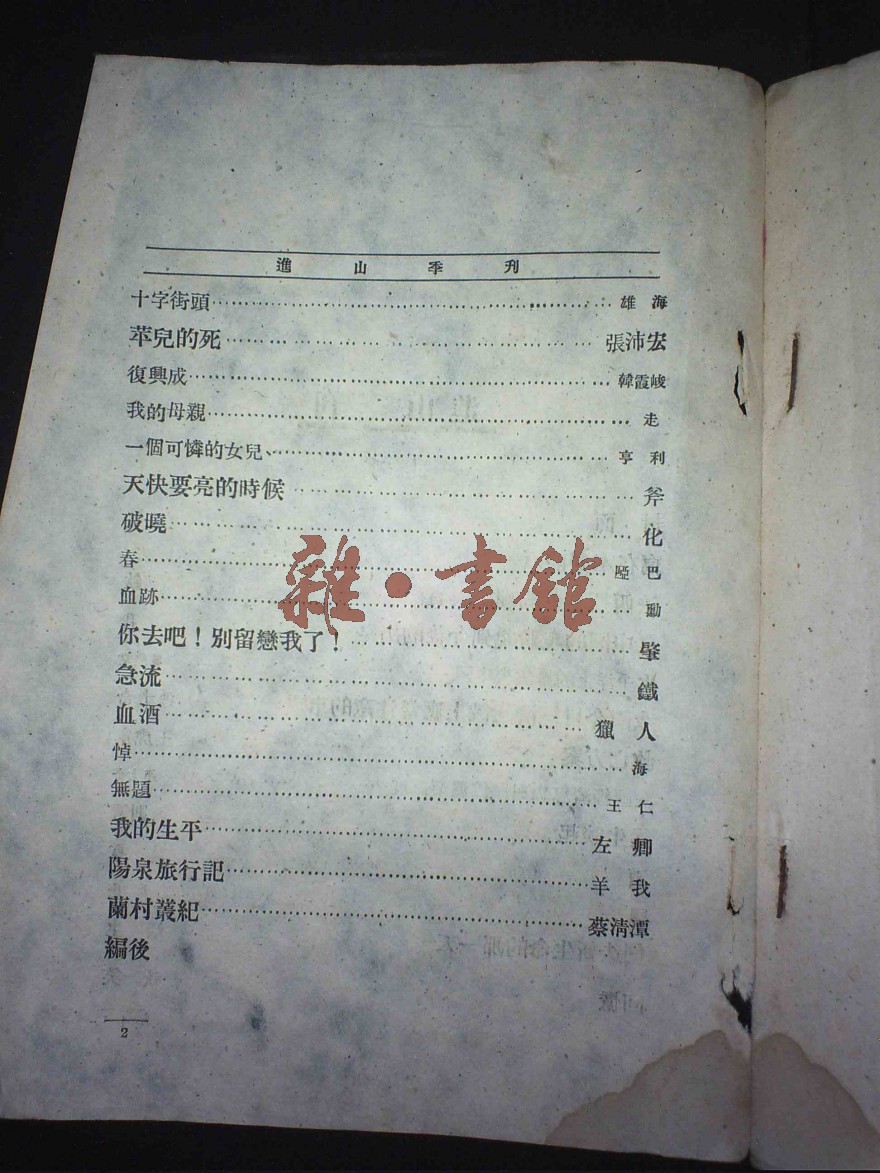 進山季刊
十字街頭……雄海
苹兒的死……張沛宏
復興成……韓霞峻
我的母親……走
一個可憐的女兒、……亨利
天快要亮的時候……斧
破曉……化
春……啞巴
血跡……勳
你去吧！別留戀我了！……肇
急流……鐵
血酒……獵人
悼……海
無題……王仁
我的生平……左卿
陽泉旅行記……羊我
蘭村叢紀……蔡清潭
編後
2
雜·書館